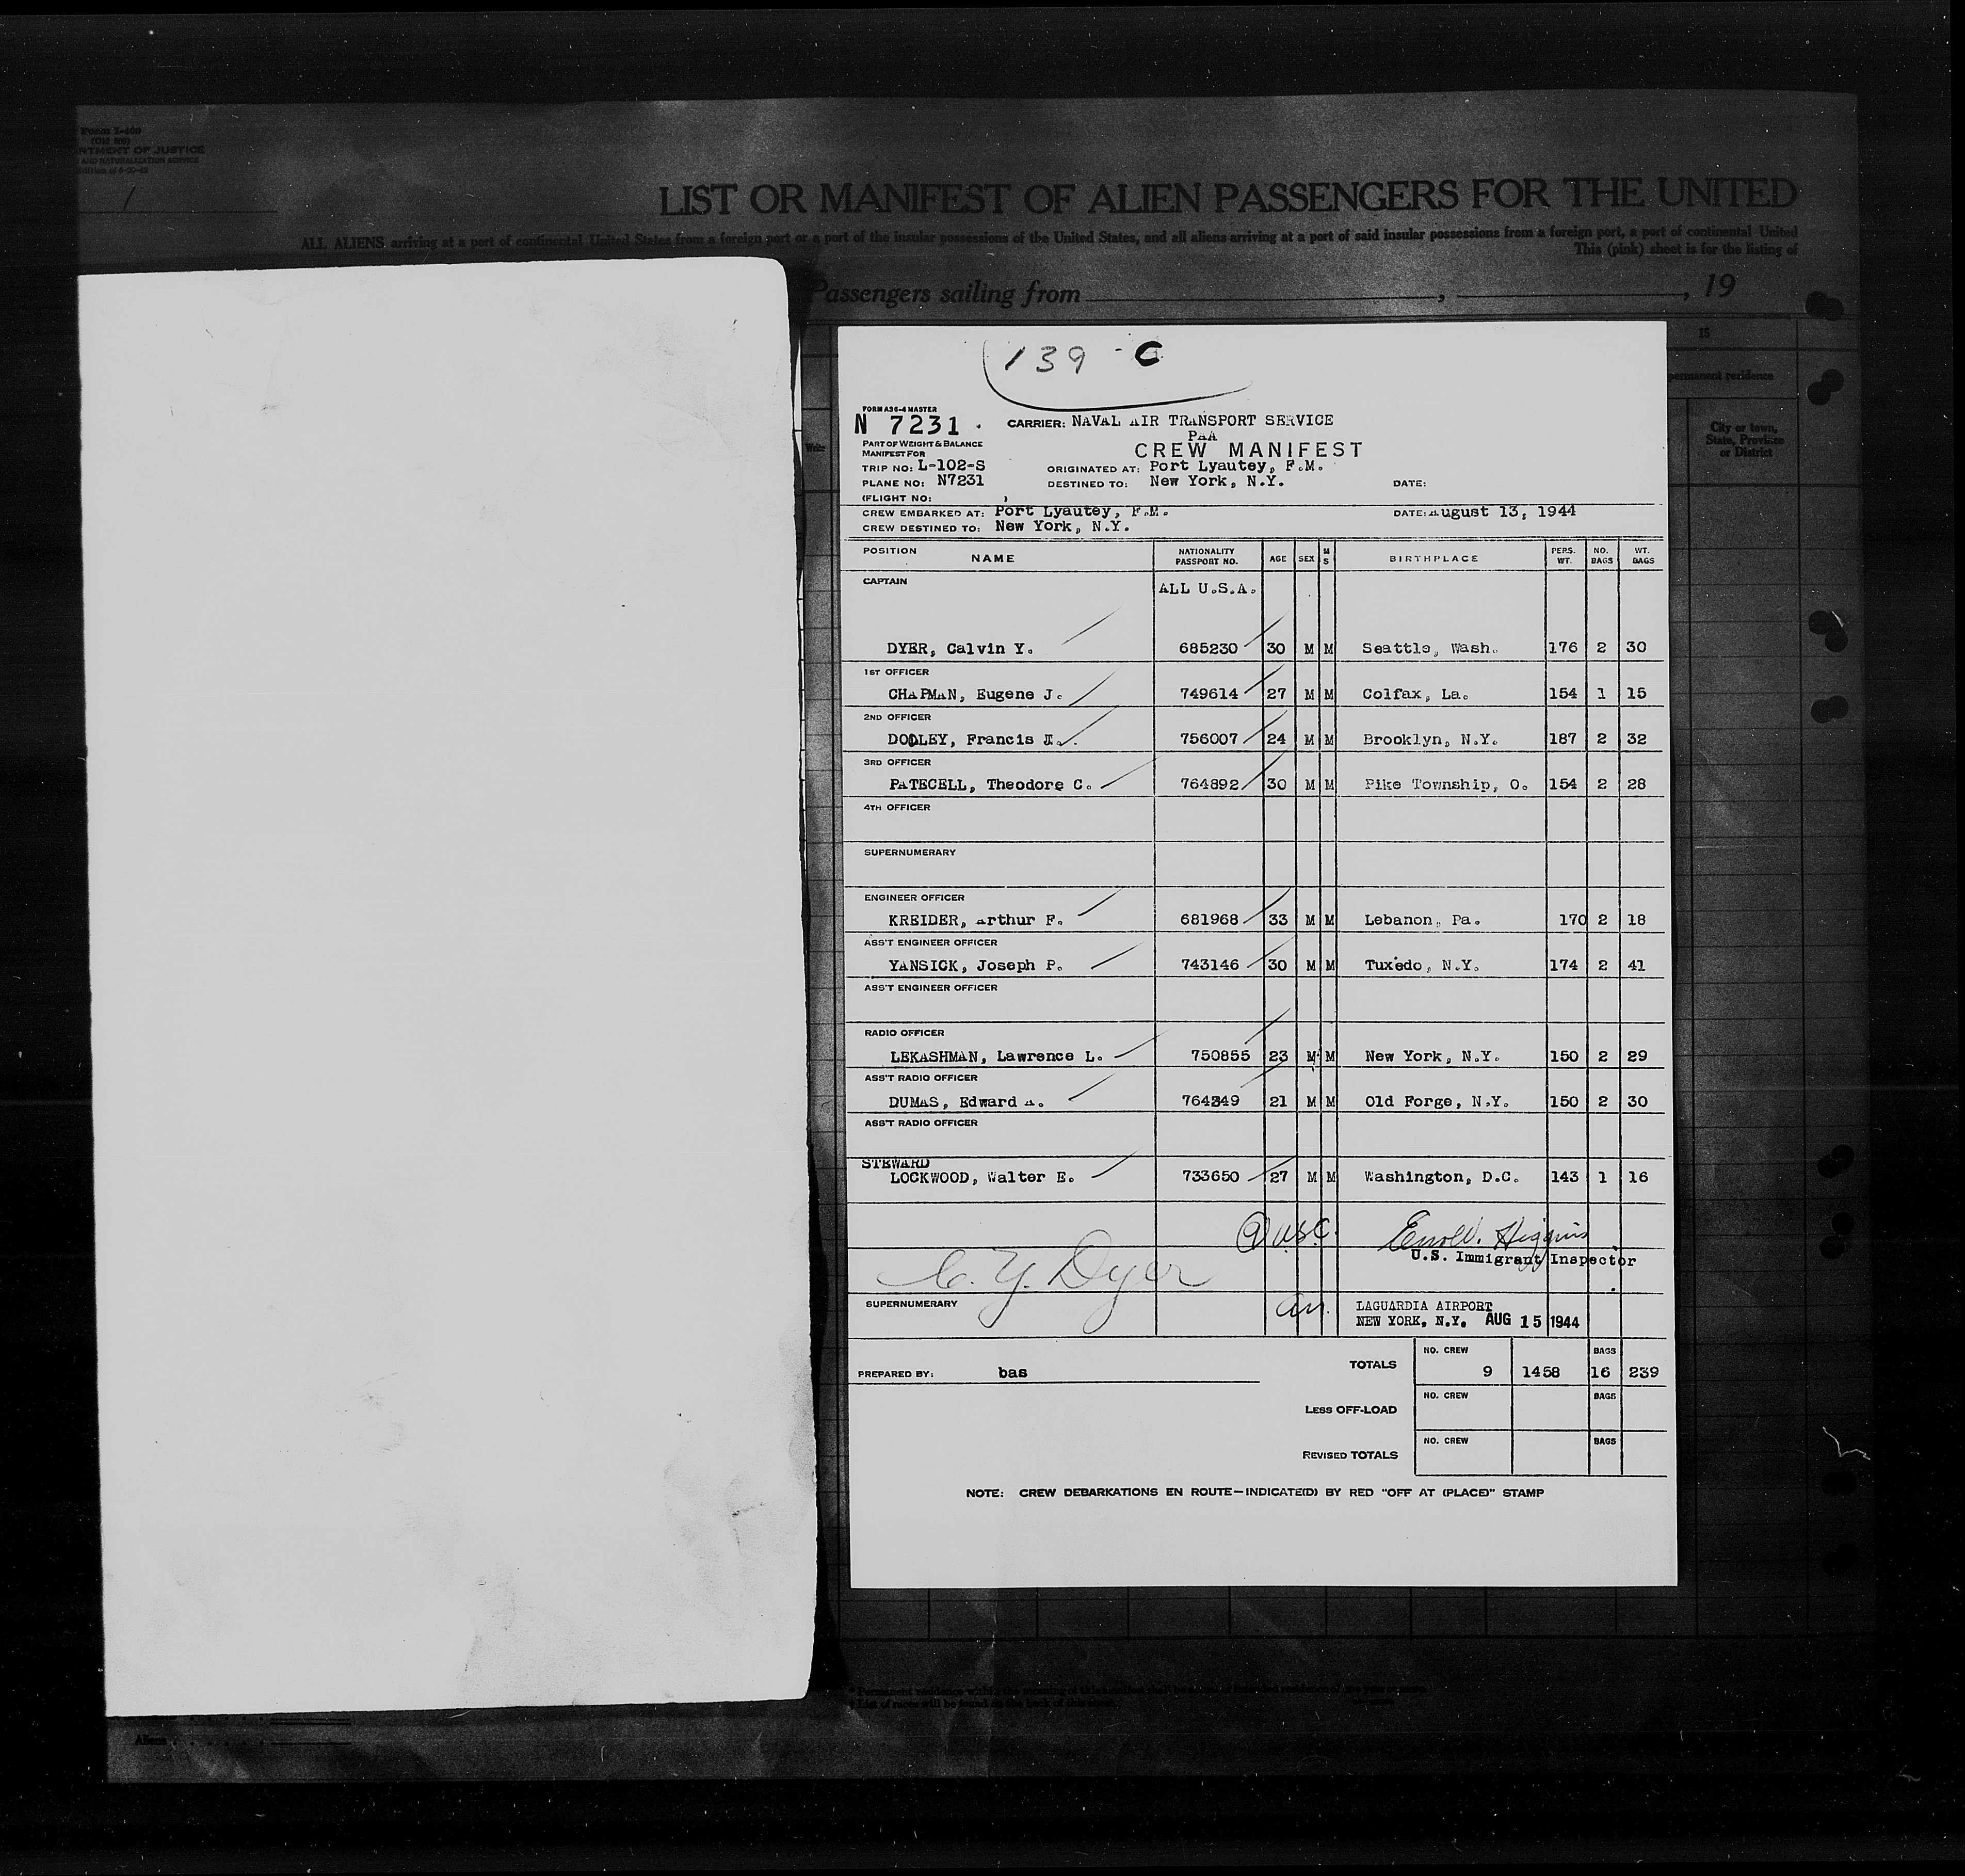 Form I-400
(Old 500)
RTMENT OF JUSTICE
AND NATURALIZATION SERVICE
1
LIST OR MANIFEST OF ALIEN PASSENGERS FOR THE UNITED
ALL ALIENS arriving at a port of continental United States from a foreign port or a port of the insular possessions of the United States, and all aliens arriving at a port of said insular possessions from a foreign port, a port of continental United
This (pink) sheet is for the listing of
Passengers sailing from , , 19
15
permanent residence
City or town,
State, Province
or District
139 - C
FORM A36-4 MASTER
N 7231 . CARRIER: NAVAL AIR TRANSPORT SERVICE
PAA
PART OF WEIGHT & BALANCE
MANIFEST FOR CREW MANIFEST
TRIP NO: L-102-S ORIGINATED AT: Port Lyautey, F.M.
PLANE NO: N7231 DESTINED TO: New York, N.Y. DATE:
(FLIGHT NO: )
CREW EMBARKED AT: Port Lyautey, F.M. DATE: August 13, 1944
CREW DESTINED TO: New York, N.Y.
POSITION NAME NATIONALITY PASSPORT NO. AGE SEX M S BIRTHPLACE PERS. WT. NO. BAGS WT. BAGS
CAPTAIN
ALL U.S.A.
DYER, Calvin Y. 685230 30 M M Seattle, Wash. 176 2 30
1ST OFFICER
CHAPMAN, Eugene J. 749614 27 M M Colfax, La. 154 1 15
2ND OFFICER
DOOLEY, Francis J. 756007 24 M M Brooklyn, N.Y. 187 2 32
3RD OFFICER
PATECELL, Theodore C. 764892 30 M M Pike Township, O. 154 2 28
4TH OFFICER
SUPERNUMERARY
ENGINEER OFFICER
KREIDER, Arthur F. 681968 33 M M Lebanon, Pa. 170 2 18
ASS'T ENGINEER OFFICER
YANSICK, Joseph P. 743146 30 M M Tuxedo, N.Y. 174 2 41
ASS'T ENGINEER OFFICER
RADIO OFFICER
LEKASHMAN, Lawrence L. 750855 23 M M New York, N.Y. 150 2 29
ASS'T RADIO OFFICER
DUMAS, Edward A. 764349 21 M M Old Forge, N.Y. 150 2 30
ASS'T RADIO OFFICER
STEWARD
LOCKWOOD, Walter E. 733650 27 M M Washington, D.C. 143 1 16
9 USC. Errol W. Higgins
U.S. Immigrant Inspector
C. Y. Dyer
SUPERNUMERARY arr. LAGUARDIA AIRPORT
NEW YORK, N.Y. AUG 15 1944
PREPARED BY: bas TOTALS NO. CREW 9 1458 BAGS 16 239
LESS OFF-LOAD NO. CREW BAGS
REVISED TOTALS NO. CREW BAGS
NOTE: CREW DEBARKATIONS EN ROUTE—INDICATE(D) BY RED "OFF AT (PLACE)" STAMP
† List of races will be found on the back of this sheet.
Aliens